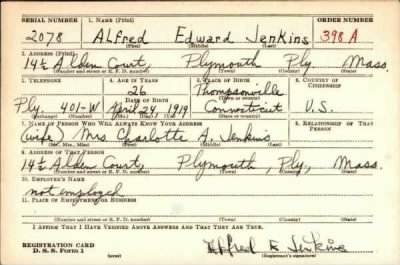 SERIAL NUMBER 1. NAME (Print) ORDER NUMBER
2078 ALFRED Edward Jenkins 398 A
(First) (Middle) (Last)
2. ADDRESS (Print)
14½ Alden Court, Plymouth Ply Mass.
(Number and street or R. F. D. number) (Town) (County) (State)
3. TELEPHONE 4. AGE IN YEARS 5. PLACE OF BIRTH 6. COUNTRY OF CITIZENSHIP
26 Thompsonville
DATE OF BIRTH (Town or county)
Ply. 401-W April 24, 1919 Connecticut U.S.
(Exchange) (Number) (Mo.) (Day) (Yr.) (State or country)
7. NAME OF PERSON WHO WILL ALWAYS KNOW YOUR ADDRESS 8. RELATIONSHIP OF THAT PERSON
(wife) Mrs Charlotte A. Jenkins
(Mr., Mrs., Miss) (First) (Middle) (Last)
9. ADDRESS OF THAT PERSON
14½ Alden Court, Plymouth, Ply, Mass.
(Number and street or R. F. D. number) (Town) (County) (State)
10. EMPLOYER'S NAME
not employed
11. PLACE OF EMPLOYMENT OR BUSINESS
(Number and street or R. F. D. number) (Town) (County) (State)
I AFFIRM THAT I HAVE VERIFIED ABOVE ANSWERS AND THAT THEY ARE TRUE.
REGISTRATION CARD
D. S. S. Form 1 (over) Alfred E Jenkins
(Registrant's signature)